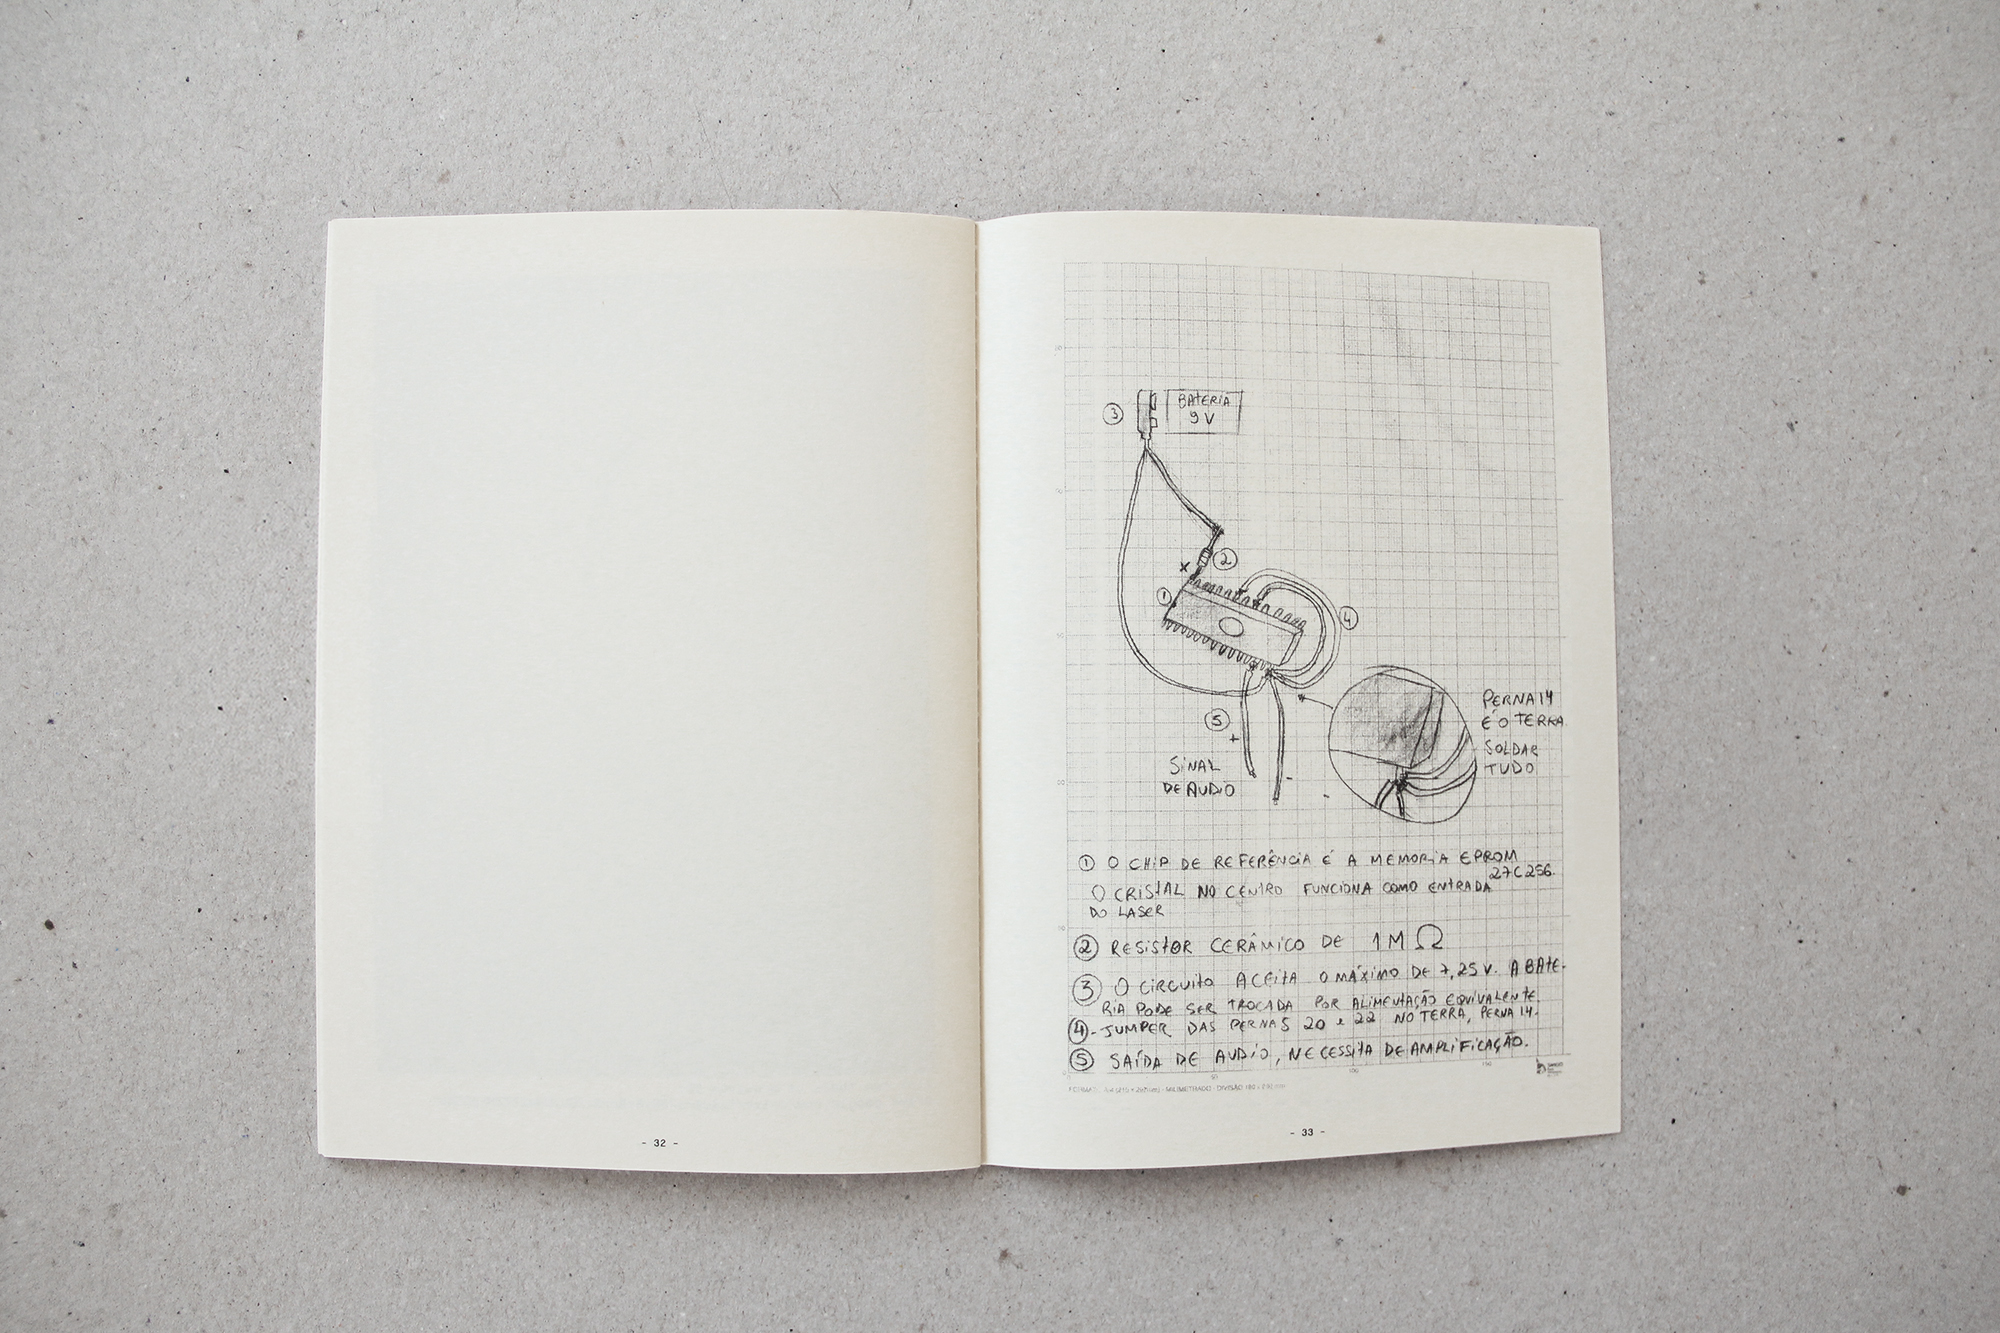 3
BATERIA
9V
2
x
1
4
5
+
SINAL
DE AUDIO
-
*
PERNA 14
É O TERRA
SOLDAR
TUDO
① O CHIP DE REFERÊNCIA É A MEMORIA EPROM
27C256.
O CRISTAL NO CENTRO FUNCIONA COMO ENTRADA
DO LASER
② RESISTOR CERÂMICO DE 1MΩ
③ O CIRCUITO ACEITA O MÁXIMO DE 7,25V. A BATE-
RIA PODE SER TROCADA POR ALIMENTAÇÃO EQUIVALENTE.
④- JUMPER DAS PERNAS 20 e 22 NO TERRA, PERNA 14.
⑤ SAÍDA DE AUDIO, NECESSITA DE AMPLIFICAÇÃO.
50
100
150
- 32 -
- 33 -